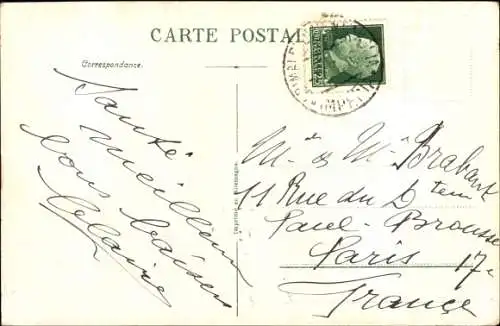 CARTE POSTALE
Correspondance.
Santé
Meilleurs
bons baisers
Imprimé en Allemagne.
Mr & Mme Brabant
11 Rue du Dteur
Paul-Brousse
Paris 17e
France